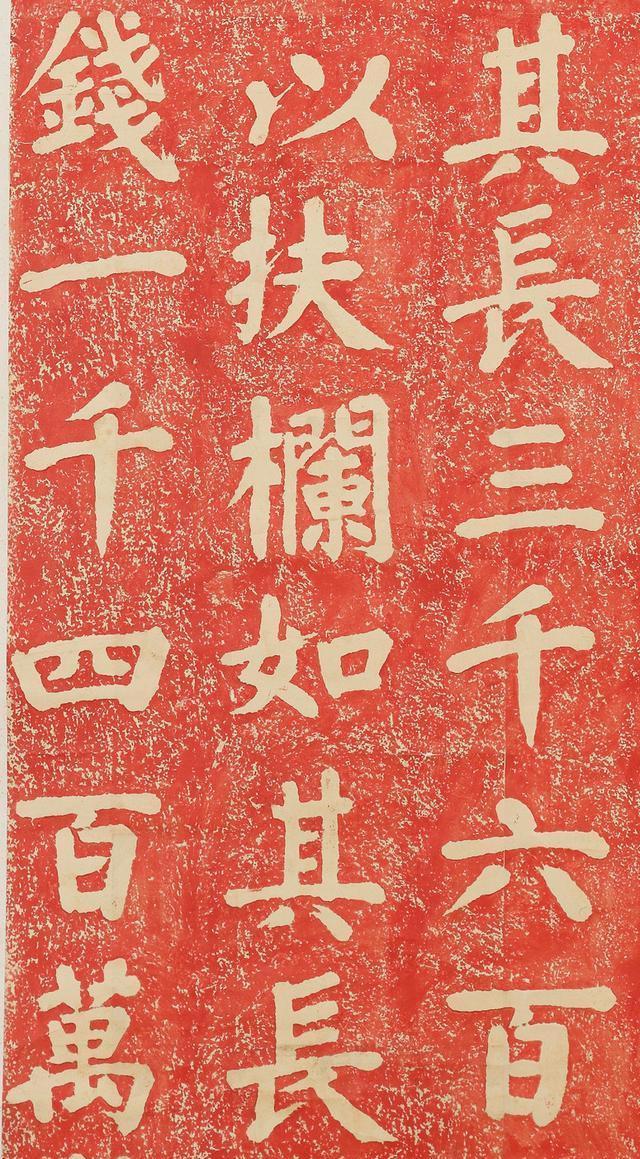 其長三千六百
以扶欄如其長
錢一千四百萬